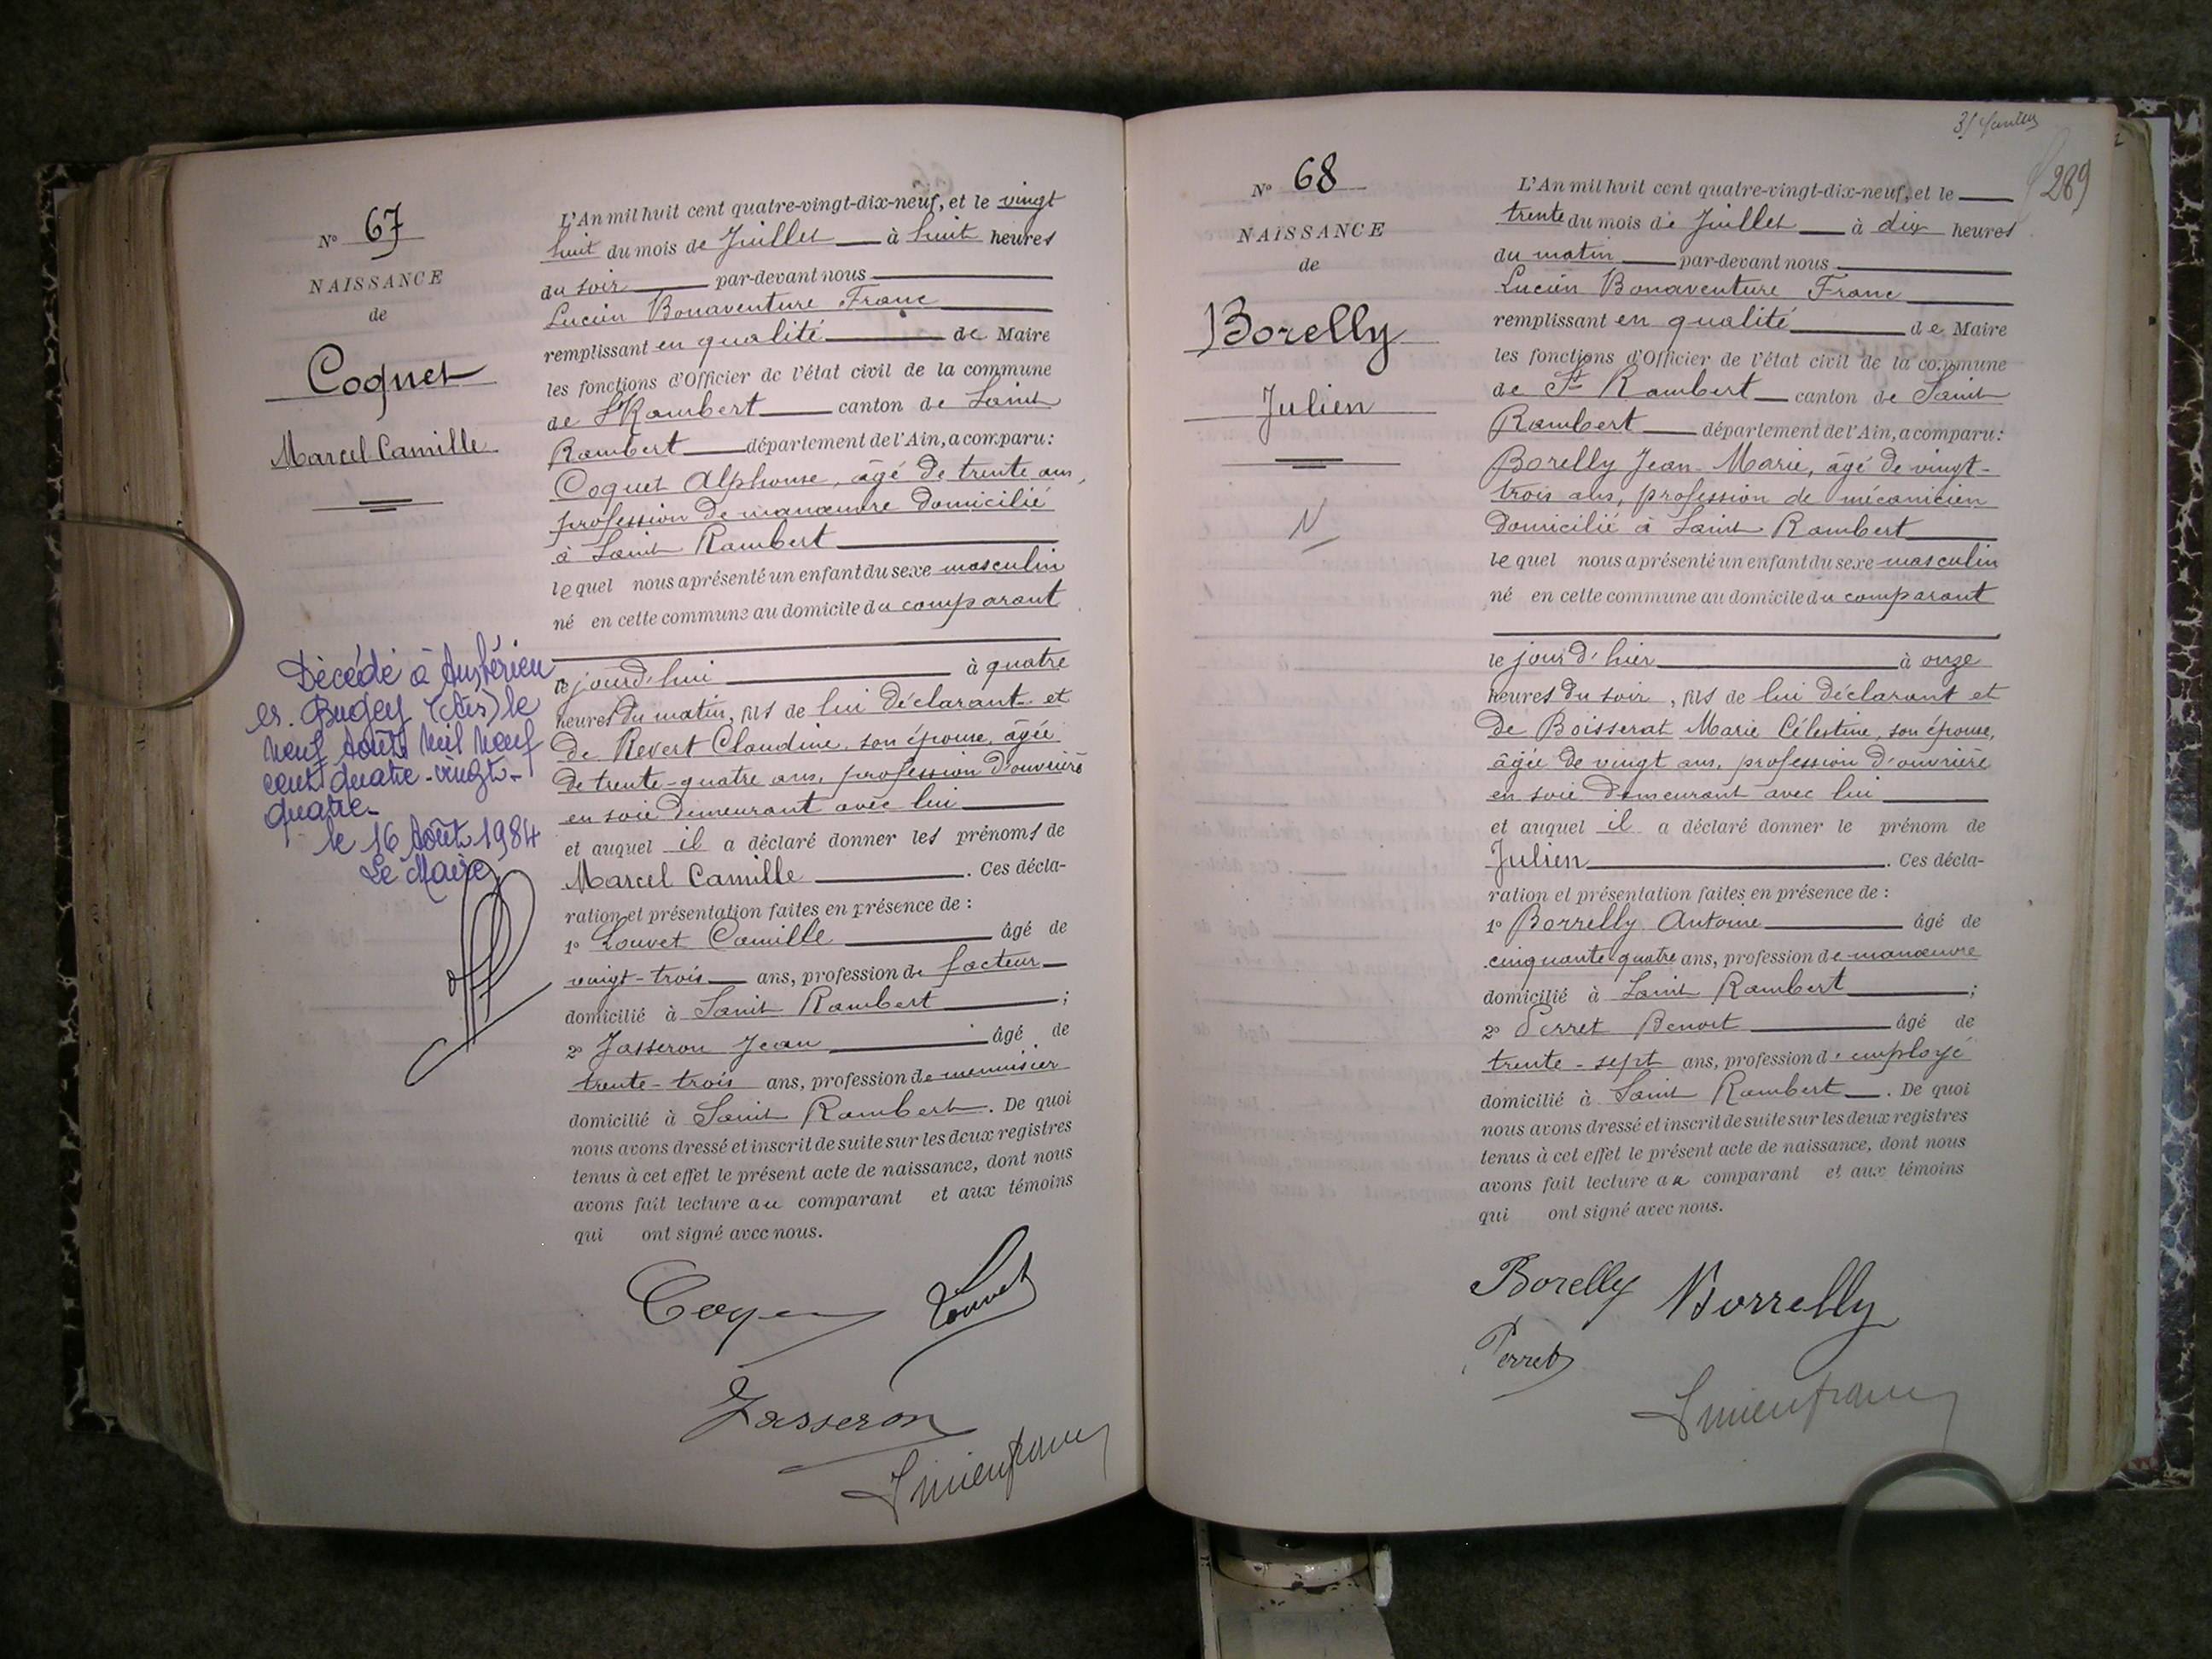 N° 67
NAISSANCE
de
Coquet
Marcel Camille
Décédé à Ambérieu
en Bugey (Ain) le
neuf Août mil neuf
cent quatre-vingt-
quatre
le 16 Août 1984
Le Maire
L'An mil huit cent quatre-vingt-dix-neuf, et le vingt
huit du mois de Juillet à huit heures
du soir par-devant nous
Lucien Bonaventure Franc
remplissant en qualité de Maire
les fonctions d'Officier de l'état civil de la commune
de St Rambert canton de Saint
Rambert département de l'Ain, a comparu :
Coquet Alphonse, âgé de trente ans,
profession de manœuvre domicilié
à Saint Rambert
lequel nous a présenté un enfant du sexe masculin
né en cette commune au domicile du comparant
le jourd'hui à quatre
heures du matin, fils de lui déclarant et
de Revert Claudine son épouse, âgée
de trente-quatre ans, profession d'ouvrière
en soie demeurant avec lui
et auquel il a déclaré donner les prénoms de
Marcel Camille. Ces décla-
ration et présentation faites en présence de :
1° Louvet Camille âgé de
vingt-trois ans, profession de facteur
domicilié à Saint Rambert ;
2° Jasseron Jean âgé de
trente-trois ans, profession de menuisier
domicilié à Saint Rambert. De quoi
nous avons dressé et inscrit de suite sur les deux registres
tenus à cet effet le présent acte de naissance, dont nous
avons fait lecture au comparant et aux témoins
qui ont signé avec nous.
Louvet
Jasseron
289
N° 68
NAISSANCE
de
Borelly
Julien
N
L'An mil huit cent quatre-vingt-dix-neuf, et le
trente du mois de Juillet à dix heures
du matin par-devant nous
Lucien Bonaventure Franc
remplissant en qualité de Maire
les fonctions d'Officier de l'état civil de la commune
de St Rambert canton de Saint
Rambert département de l'Ain, a comparu :
Borelly Jean-Marie, âgé de vingt-
trois ans, profession de mécanicien
domicilié à Saint Rambert
lequel nous a présenté un enfant du sexe masculin
né en cette commune au domicile du comparant
le jour d'hier à onze
heures du soir, fils de lui déclarant et
de Boisserat Marie Célestine, son épouse,
âgée de vingt ans, profession d'ouvrière
en soie demeurant avec lui
et auquel il a déclaré donner le prénom de
Julien. Ces décla-
ration et présentation faites en présence de :
1° Borrelly Antoine âgé de
cinquante quatre ans, profession de manœuvre
domicilié à Saint Rambert ;
2° Perret Benoit âgé de
trente-sept ans, profession d'employé
domicilié à Saint Rambert. De quoi
nous avons dressé et inscrit de suite sur les deux registres
tenus à cet effet le présent acte de naissance, dont nous
avons fait lecture au comparant et aux témoins
qui ont signé avec nous.
Borelly Borrelly
Perret